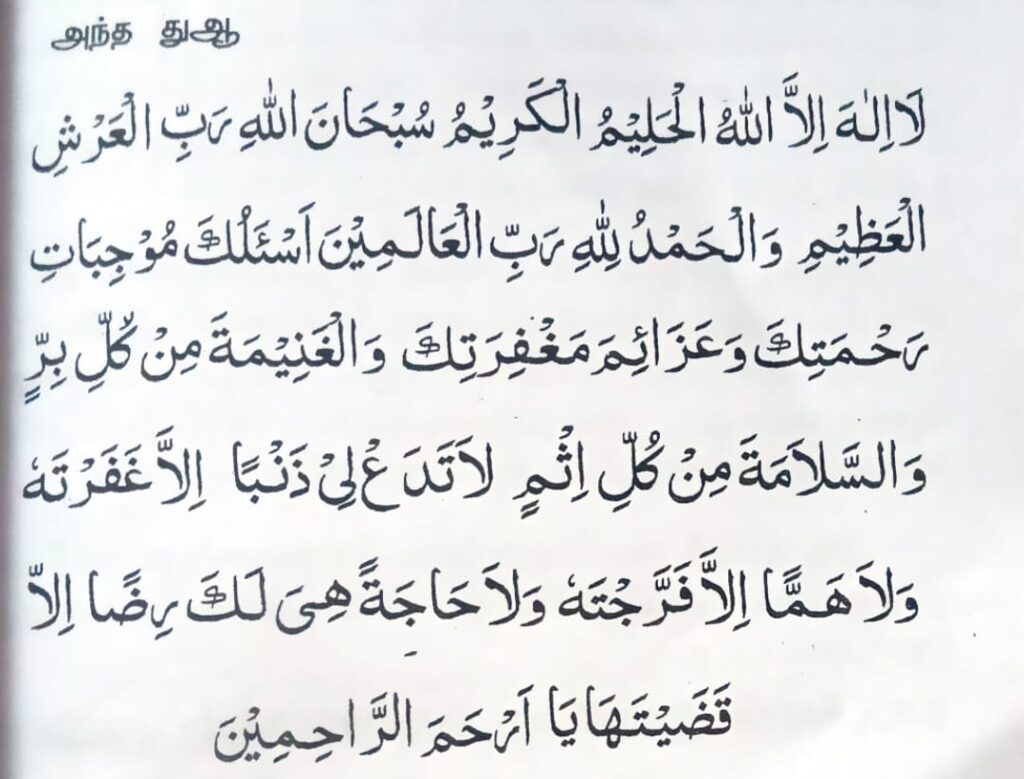 அந்த துஆ
لَا اِلٰهَ اِلاَّ اللهُ الْحَلِيْمُ الْكَرِيْمُ سُبْحَانَ اللهِ رَبِّ الْعَرْشِ
الْعَظِيْمِ وَالْحَمْدُ لِلّٰهِ رَبِّ الْعَالَمِيْنَ اَسْئَلُكَ مُوْجِبَاتِ
رَحْمَتِكَ وَعَزَائِمَ مَغْفِرَتِكَ وَالْغَنِيْمَةَ مِنْ كُلِّ بِرٍّ
وَالسَّلاَمَةَ مِنْ كُلِّ اِثْمٍ لاَتَدَعْ لِيْ ذَنْبًا اِلاَّ غَفَرْتَهٗ
وَلاَ هَمًّا اِلاَّ فَرَّجْتَهٗ وَلاَ حَاجَةً هِىَ لَكَ رِضًا اِلاَّ
قَضَيْتَهَا يَا اَرْحَمَ الرَّاحِمِيْنَ